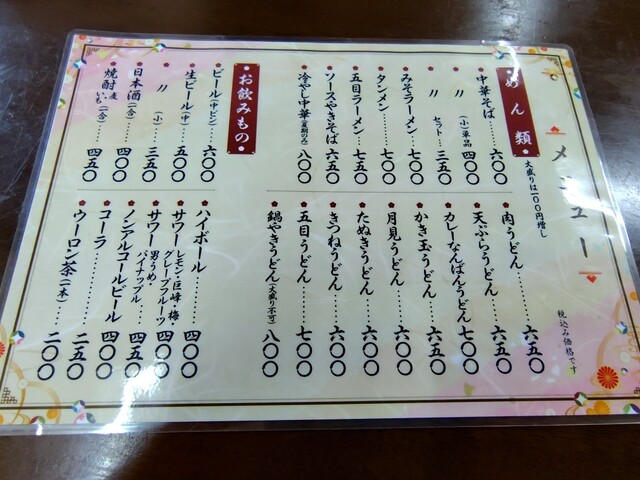 メニュー
税込み価格です
めん類
大盛りは一〇〇円増し
中華そば……六〇〇
〃（小）単品……四〇〇
〃 セット……三五〇
みそラーメン……七〇〇
タンメン……七〇〇
五目ラーメン……七五〇
ソースやきそば……六五〇
冷やし中華（夏期のみ）……八〇〇
肉うどん……六五〇
天ぷらうどん……六五〇
カレーなんばんうどん……七〇〇
かき玉うどん……六五〇
月見うどん……六〇〇
たぬきうどん……六〇〇
きつねうどん……六〇〇
五目うどん……七〇〇
鍋やきうどん（大盛り不可）……八〇〇
お飲みもの
ビール（中ビン）……六〇〇
生ビール（中）……五〇〇
〃（小）……三五〇
日本酒（一合）……四〇〇
焼酎 麦 いも（一合）……四五〇
ハイボール……四〇〇
サワー レモン・巨峰・梅・グレープフルーツ……四〇〇
サワー 男うめ・パイナップル……四五〇
ノンアルコールビール……四〇〇
コーラ……二五〇
ウーロン茶（一本）……二〇〇